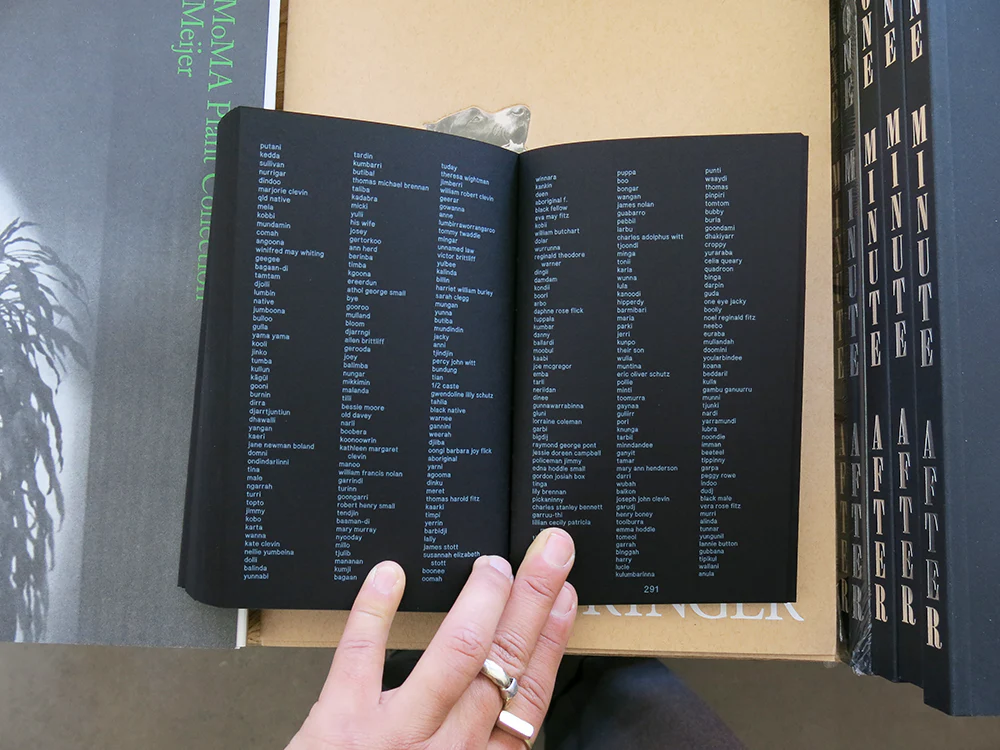 MoMA Plant Collection
Meijer
putani
kedda
sullivan
nurrigar
dindoo
marjorie clevin
qld native
mela
kobbi
mundamin
comah
angoona
winifred may whiting
geegee
bagaan-di
tamtam
djoili
lumbin
native
jumboona
bulloo
gulla
yama yama
kooli
jinko
tumba
kullun
kāgūl
gooni
burnin
dirra
djarrtjuntiun
dhawalli
yangan
kaeri
jane newman boland
domni
ondindarlinni
tina
male
ngarrah
turri
topto
jimmy
kobo
karta
wanna
kate clevin
nellie yumbeina
dolli
balinda
yunnabi
tardin
kumbarri
butibal
thomas michael brennan
taliba
kadabra
micki
yulli
his wife
josey
gertorkoo
ann herd
berinba
timba
kgoona
ereerdun
athol george small
bye
gooroo
mulland
bloom
djarrngi
allen brittliff
gerooda
joey
balimba
nungar
mikkimin
malanda
tilli
bessie moore
old davey
narli
boobera
koonoowrin
kathleen margaret
clevin
manoo
william francis nolan
garrindi
turinn
goongarri
robert henry small
tendjin
baaman-di
mary murray
nyooday
millo
tjulib
mananan
kumji
bagaan
tuday
theresa wightman
jimbarri
william robert clevin
geerar
gowanna
anne
lumbirraworrangaroo
tommy twaddle
mingar
unnamed law
victor britliff
yulbee
kalinda
billin
harriet william burley
sarah clegg
mungan
yunna
butiba
mundindin
jacky
anni
tjindjin
percy john witt
bundung
tian
1/2 caste
gwendoline lilly schutz
tahlia
black native
warnee
gannini
weerah
djiiba
oongi barbara joy flick
aboriginal
yarni
agooma
dinku
meret
thomas harold fitz
kaarki
timpi
yerrin
barbidji
lally
james stott
susannah elizabeth
stott
boonee
oomah
winnara
kankin
deen
aboriginal f.
black fellow
eva may fitz
kobil
william butchart
dolar
wurrunna
reginald theodore
warner
dingii
damdam
kondii
boorl
arbo
daphne rose flick
tuppala
kumbar
danny
ballardi
moobul
kaabi
joe mcgregor
emba
tarli
neriidan
dinee
gunnawarrabinna
gluni
lorraine coleman
garbi
bigdij
raymond george pont
jessie doreen campbell
policeman jimmy
edna hoddle small
gordon josiah box
tinga
lily brennan
pickaninny
charles stanley bennett
garruu-thi
lillian cecily patricia
puppa
boo
bongar
wangan
james nolan
guabarro
pebbil
iarbu
charles adolphus witt
tjoondi
minga
tonii
karla
wunna
lula
kanoodi
hipperdy
barmibari
maria
parki
jerri
kunpo
their son
wulla
muntina
eric oliver schutz
pollie
mintti
toomurra
gaynaa
guliirr
pori
knunga
tarbil
minndandee
ganyit
tamar
mary ann henderson
darri
wubah
balkon
joseph john clevin
garudj
henry boney
toolburra
emma hoddle
tomeol
garrah
binggah
harry
lucie
kulumbarinna
punti
waaydi
thomas
pinpiri
tomtom
bubby
burla
goondami
dhakiyarr
croppy
yuraraba
celia queary
quadroon
binga
darpin
guda
one eye jacky
boolly
noel reginald fitz
neebo
euraba
mullandah
doomini
yoularbindee
koana
beddarii
kulls
gambu ganuurru
munni
tjunki
nardi
yarramundi
lubra
noondie
imman
beeteel
tippinny
garpa
peggy rowe
indoo
dudj
black male
vera rose fitz
murri
alinda
tunnar
yungunil
lannie button
gubbana
tipikul
wallani
anula
291
RINGER
ONE MINUTE AFTER
ONE MINUTE AFTER
ONE MINUTE AFTER
ONE MINUTE AFTER